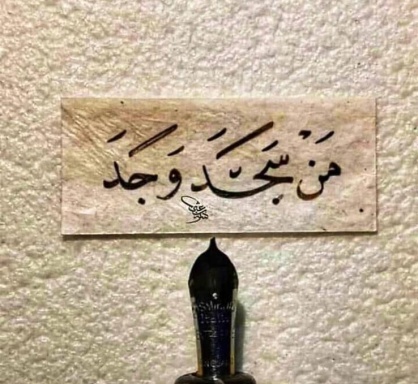 مَنْ سَجَدَ وَجَدَ